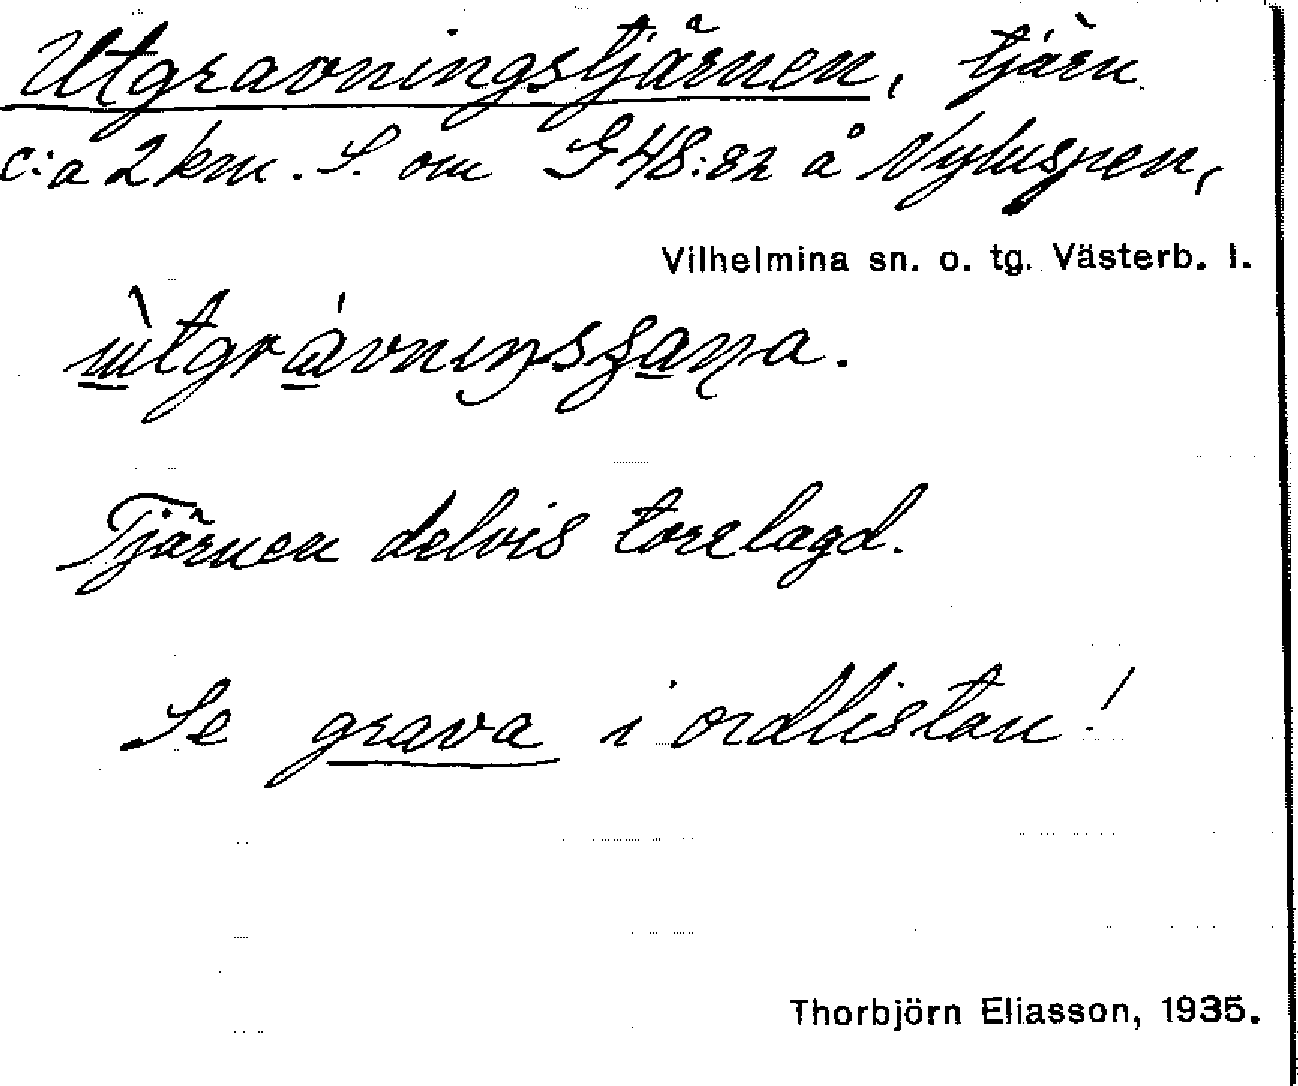 Utgravningstjärnen, tjärn
c:a 2 km. S. om G48:82 å Nyluspen,
Vilhelmina sn. o. tg. Västerb. l.
Tjärnen delvis torrlagd.
Se grava i ordlistan!
Thorbjörn Eliasson, 1935.